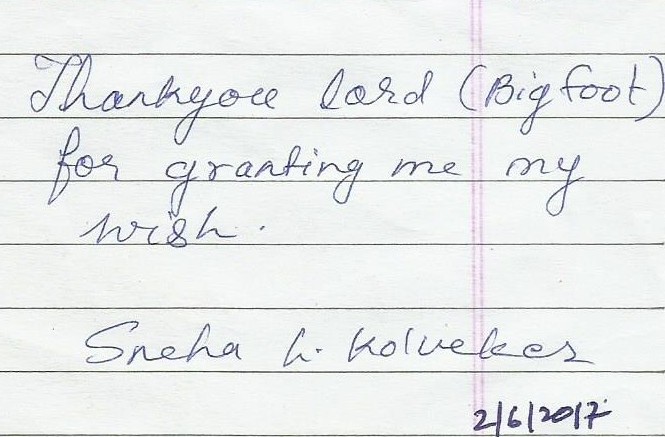 Thankyou lord (Bigfoot)
for granting me my
wish.
Sneha h. Kolvekar
2/6/2017